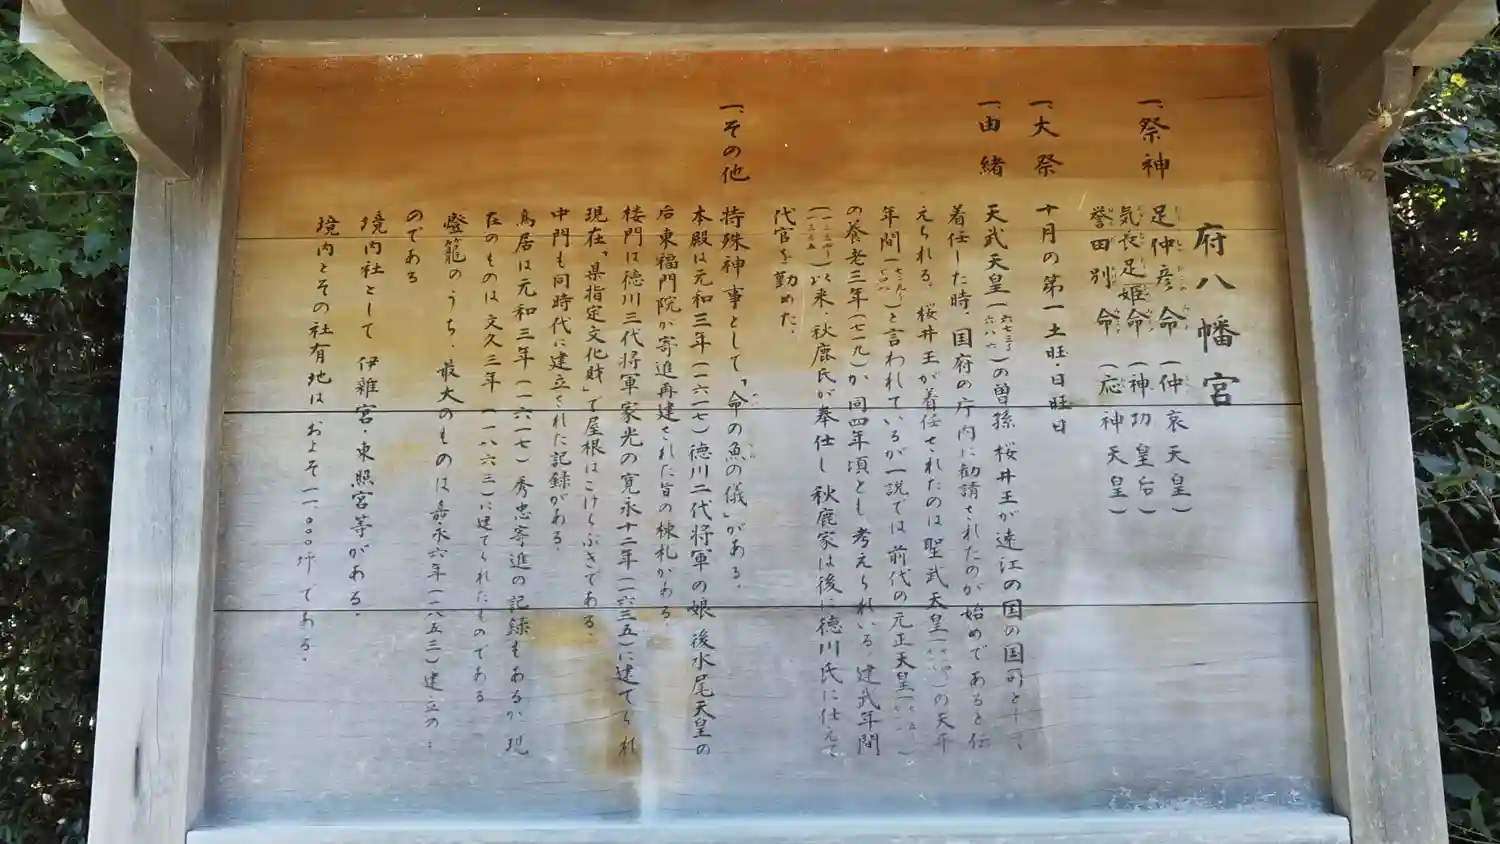 府八幡宮
一、祭神
足仲彦命(仲哀天皇)
気長足姫命(神功皇后)
誉田別命(応神天皇)
一、大祭 十月の第一土旺・日旺日
一、由緒 天武天皇(六七三〜六八六)の曽孫 桜井王が遠江の国の国司として
着任した時、国府の庁内に勧請されたのが始めであると伝
えられる。桜井王が着任されたのは聖武天皇の天平
年間(七二九〜七四八)と言われているが一説では前代の元正天皇
の養老三年(七一九)か同四年頃とし考えられいる。建武年間
(一三三四〜一三三五)以来、秋鹿氏が奉仕し秋鹿家は後に徳川氏に仕えて
代官を勤めた。
一、その他 特殊神事として、「命の魚の儀」がある。
本殿は元和三年(一六一七)徳川二代将軍の娘 後水尾天皇の
后東福門院が寄進再建された旨の棟札がある
楼門は徳川三代将軍家光の寛永十二年(一六三五)に建てられ
現在、「県指定文化財」で屋根はこけらぶきである。
中門も同時代に建立された記録がある。
鳥居は元和三年(一六一七)秀忠寄進の記録もあるが現
在のものは文久三年(一八六三)に建てられたものである
燈籠のうち、最大のものは嘉永六年(一八五三)建立の
のである
境内社として 伊雑宮・東照宮等がある。
境内とその社有地は およそ一一、〇〇〇坪である。